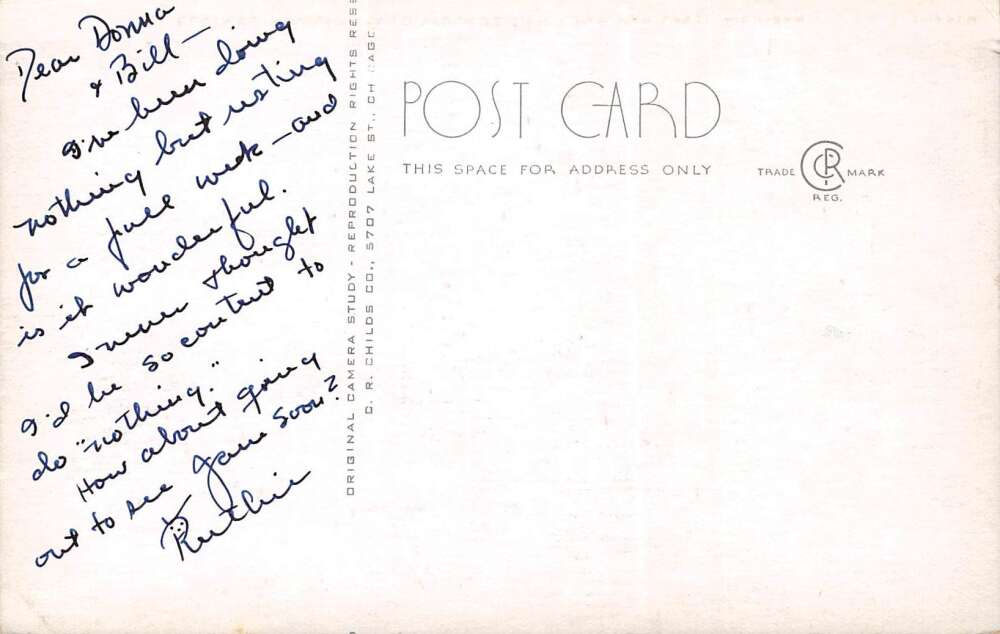 Dear Donna
& Bill —
I've been doing
nothing but resting
for a full week — and
is it wonderful.
I never thought
I'd be so content to
do "nothing."
How about going
out to see game soon?
Ruthie
ORIGINAL CAMERA STUDY - REPRODUCTION RIGHTS RESE
C. R. CHILDS CO., 5707 LAKE ST., CHICAGO
POST CARD
THIS SPACE FOR ADDRESS ONLY
TRADE CRC MARK
REG.